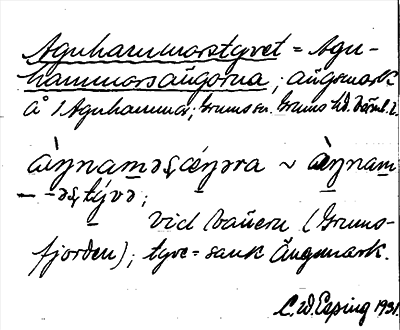 Agnhammarstyvet = Agn-
hammarsängarna; ängsmark
å /Agnhammar, Grums sn. Grums hd. Värml. l.
àŋnaməʂǽŋəra ~ àŋnam
– -əʂtývə;
vid Vänern (Grums-
fjorden); tyve = sank ängsmark.
C. W. Esping 1931.